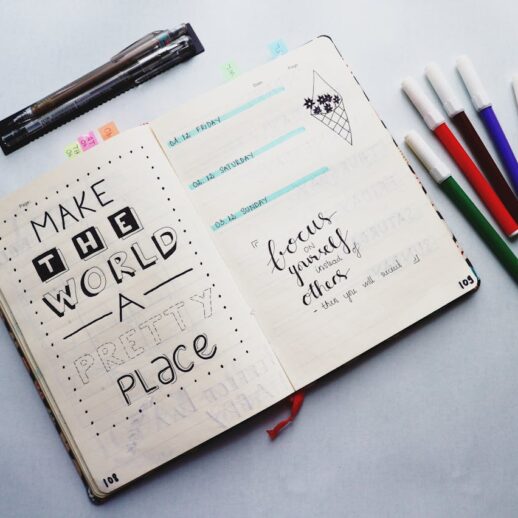 MAKE
THE
WORLD
A
PRETTY
PLACE
108
Date
Page
01.12. FRIDAY
02.12. SATURDAY
03.12. SUNDAY
focus
ON
yourself
instead of
others
- then you will succeed
109